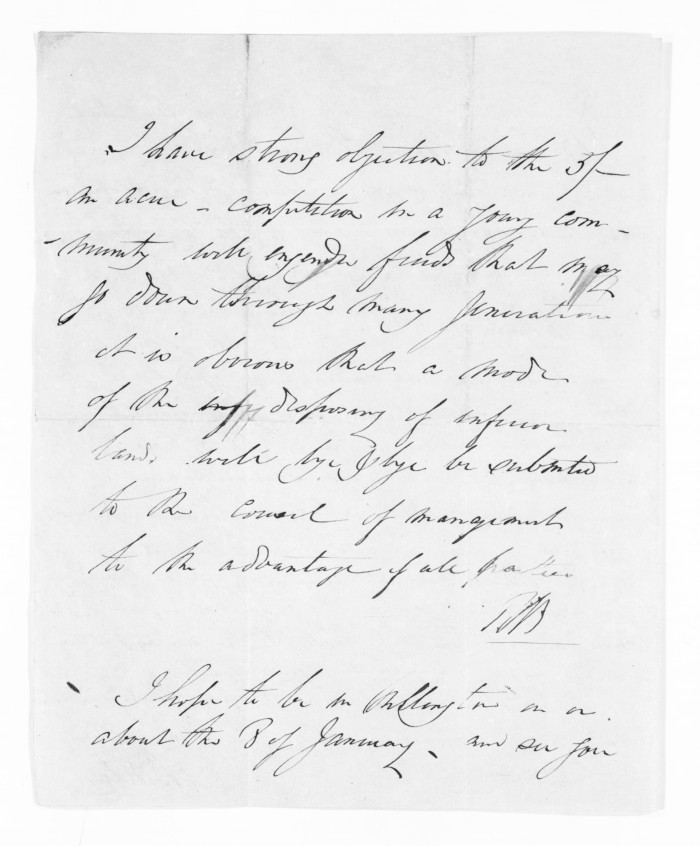 I have strong objection to the 5/-
an acre - competition in a young com-
munity will engender feuds that may
go down through many generations
it is obvious that a mode
of the disposing of inferior
lands will bye & bye be submited
to the council of mangement
to the advantage of all parties
I hope to be in Wellington on or
about the 8 of January - and see you